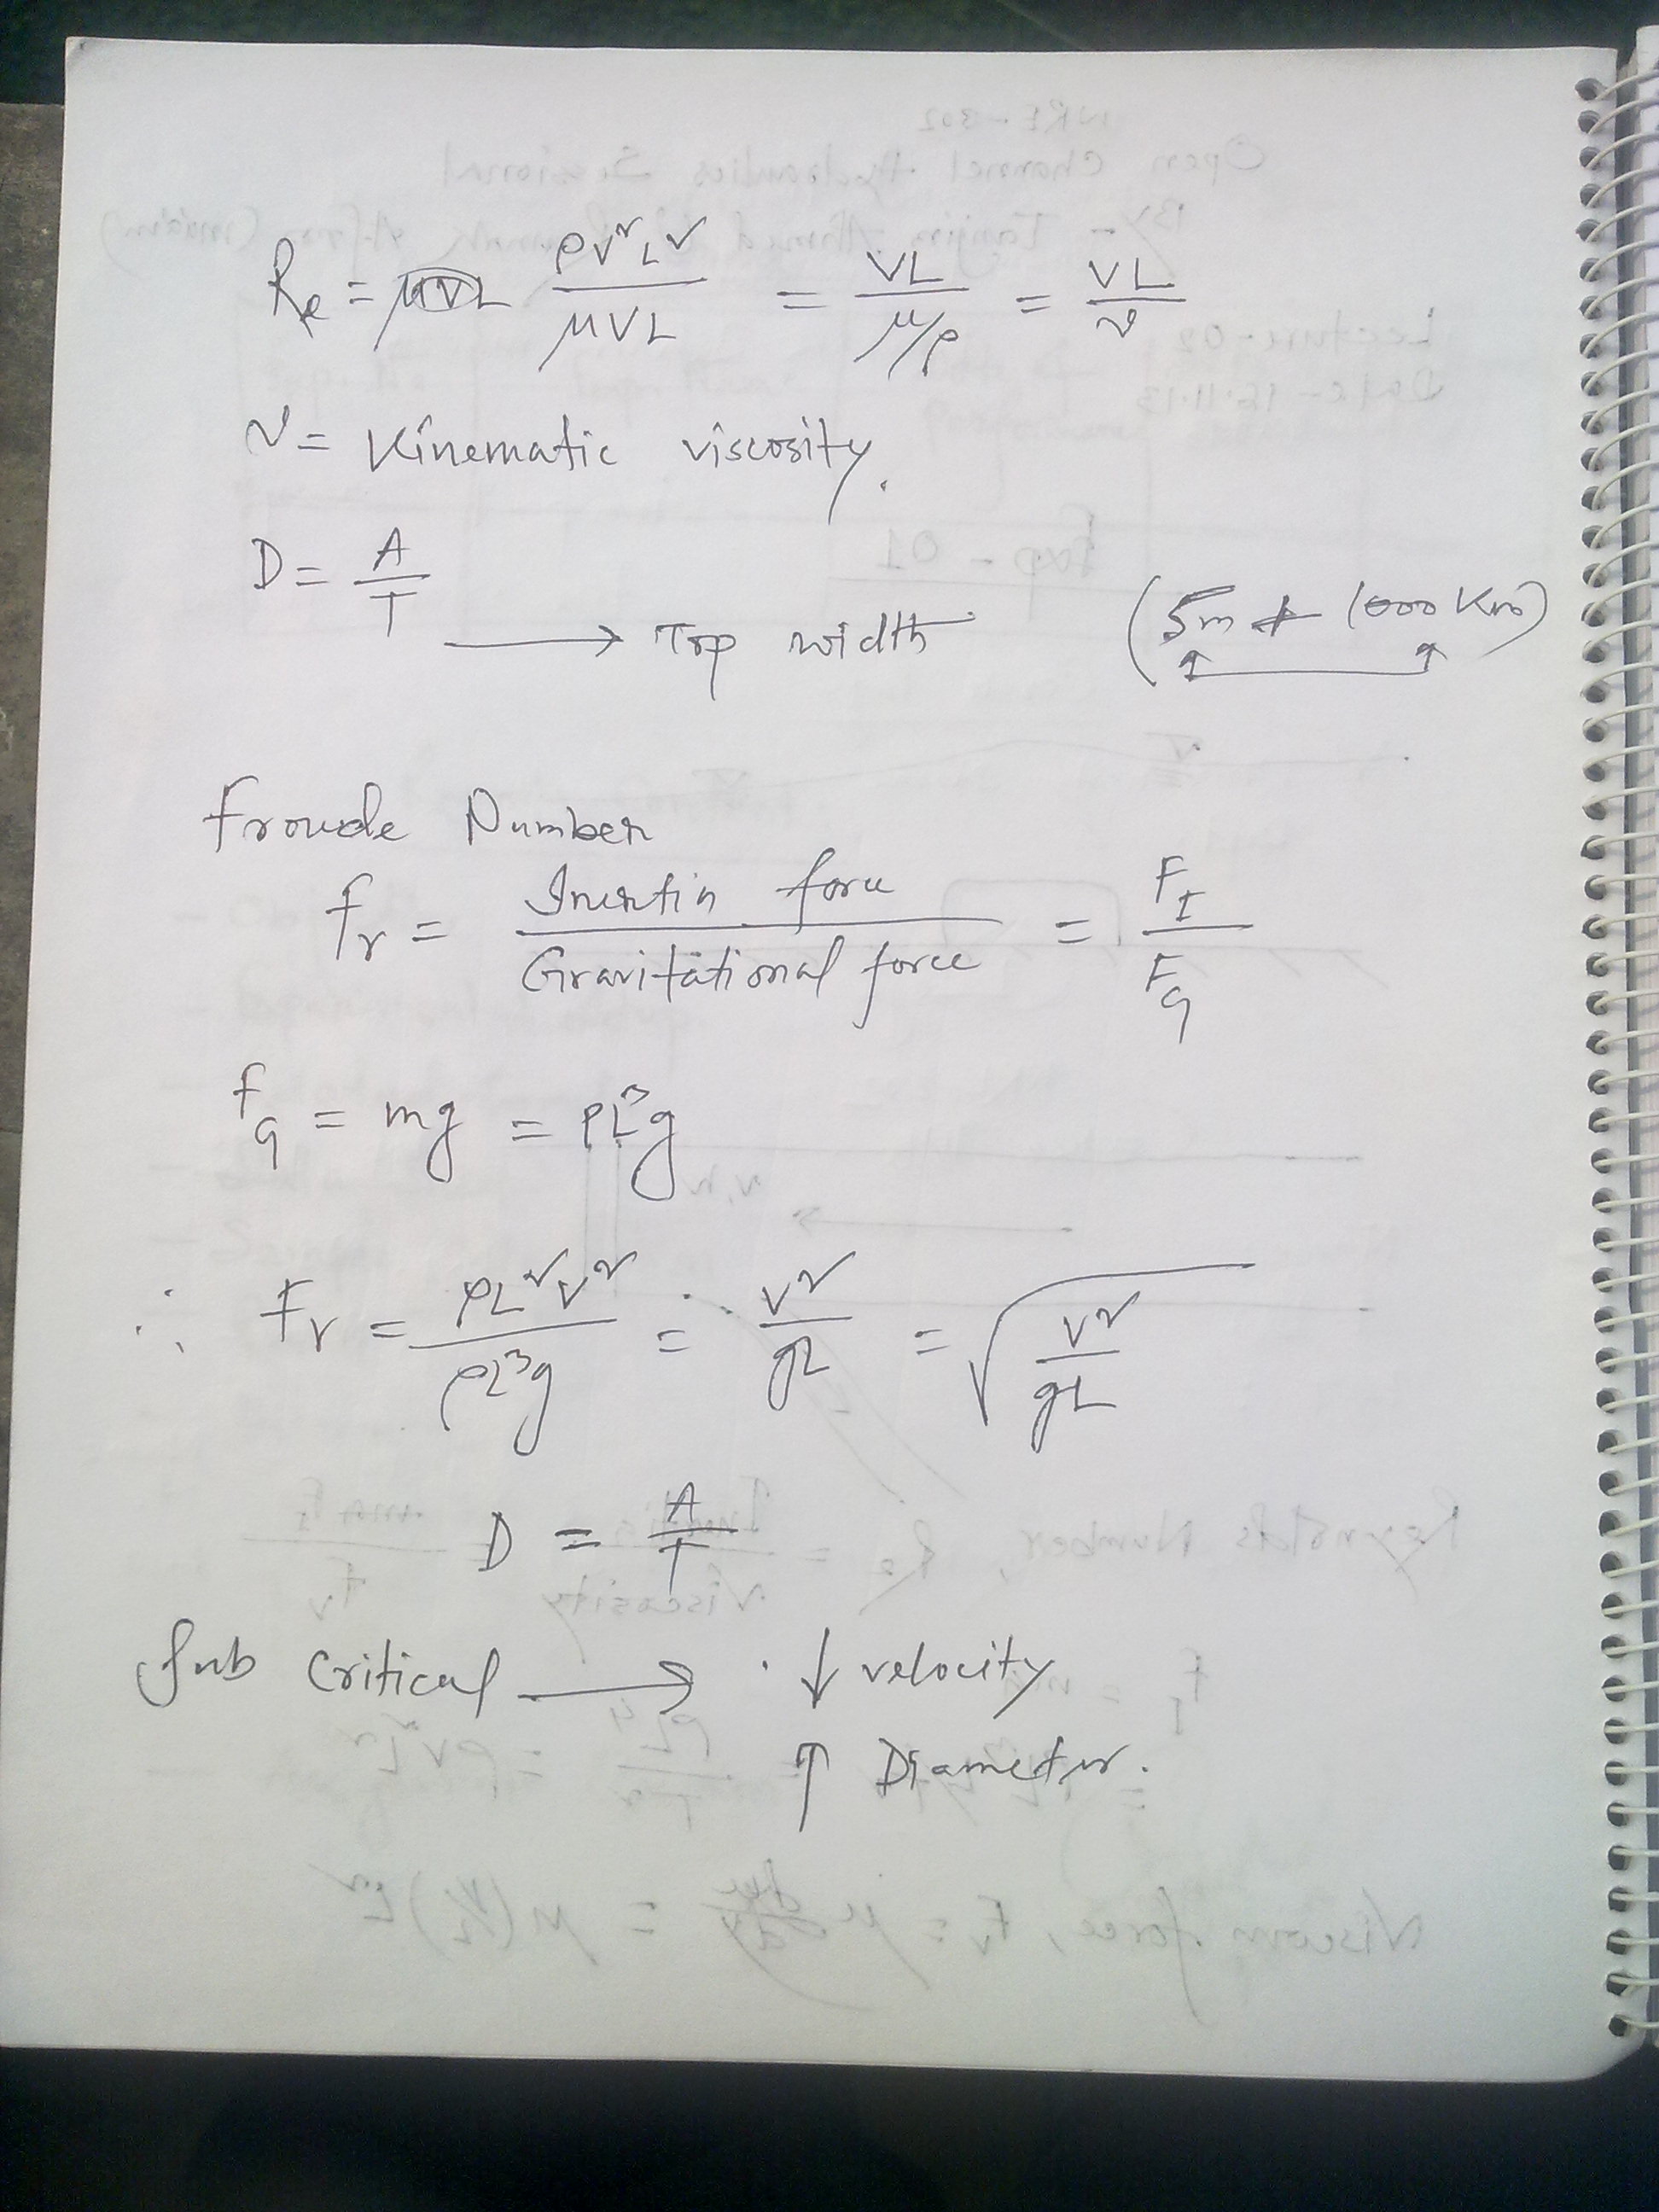 Re = μVL ρV²L² / μVL = VL / μ/ρ = VL / ν
ν = Kinematic viscosity.
D = A / T → Top width (5m 1000 Km)
Froude Number
Fr = Inertia force / Gravitational force = F_I / F_G
F_G = mg = ρL³g
∴ Fr = ρL²V² / ρL³g = V² / gL = √(V² / gL)
D = A / T
Sub Critical → ↓ velocity
↑ Diameter.